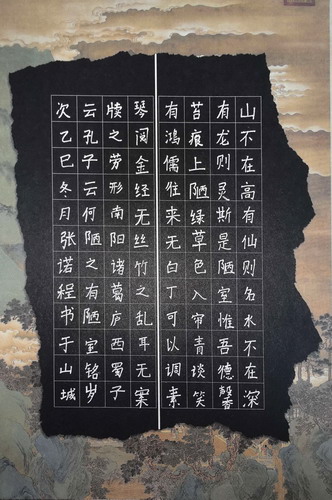 山不在高有仙则名水不在深
有龙则灵斯是陋室惟吾德馨
苔痕上陋绿草色入帘青谈笑
有鸿儒往来无白丁可以调素
琴阅金经无丝竹之乱耳无案
牍之劳形南阳诸葛庐西蜀子
云孔子云何陋之有陋室铭岁
次乙巳冬月张诺程书于山城